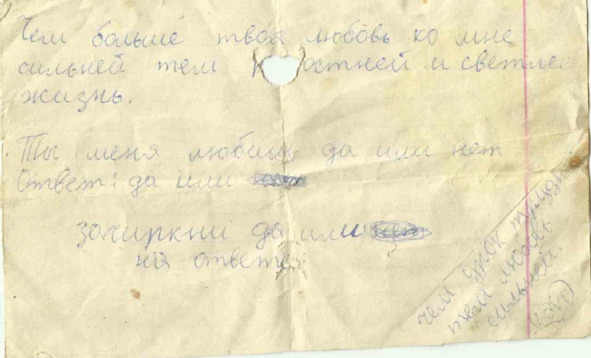 Чем больше твоя любовь ко мне
сильней тем остней и светлее
жизнь.
Ты меня любишь да или нет
Ответ: да или
зачиркни да или нет
на ответе
чем
тем любовь
сильней